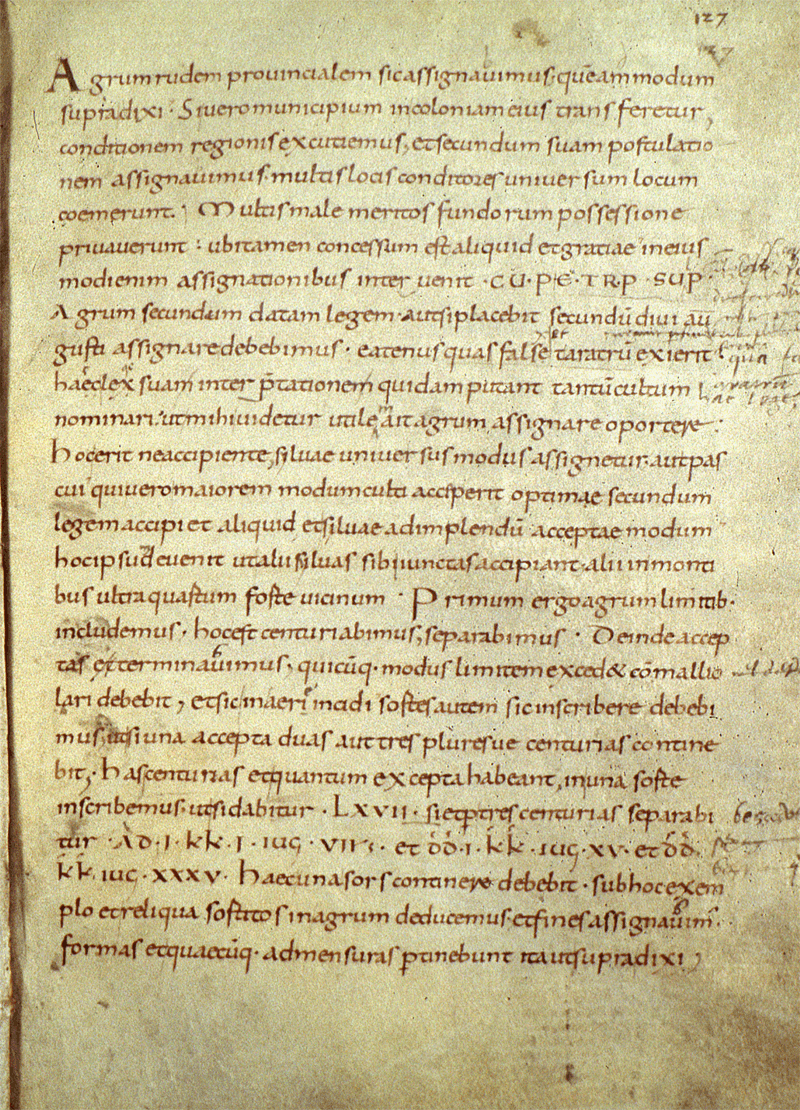 127
Agrum rudem prouincialem sic assignauimus. quē ammodum
supra dixi · Si uero municipium incoloniam eius transferetur,
conditionem regionis excutiemus, et secundum suam postulatio
nem assignauimus multis locis conditores uniuersum locum
coemerunt. Multis male meritos fundorum possessione
priuauerunt : ubi tamen concessum est aliquid et gratiae in eius
modi enim assignationibus interuenit · CU · P · E · TR · P · SUP ·
Agrum secundum datam legem. aut si placebit secundū diui au
gusti assignare debebimus. eatenus quas false taratrū exierit
haec lex suam inter p̄tationem quidam putant tantū cultum
nominari. ut mihi uidetur utile ait agrum assignare oportere.
hoc erit ne accipiente siluae uniuersus modus assignetur. aut pas
cui qui uero maiorem modum culti acciperit optimae secundum
legem accipiet aliquid et siluae adimplendū acceptae modum
hoc ipsud euenit ut alii siluas sibi iunctas accipiant. alii in monti
bus ultra quastum foste uicinum · Primum ergo agrum limitib·
includemus. hoc est centuriabimus, separabimus · Deinde accep
tas et terminauimus. quicūq· modus limitem exced& cōmallio
lari debebit, et sic in aeri incidi sostes autem sic inscribere debebi
mus, ut si una accepta duas aut tres pluresue centurias contine
bit, · has centurias et quantum excepta habeant, in una soste
inscribemus. ut si dabitur · LXVII · si et p̄ tres centurias separabi
tur · AD · I · KK · I · IUG · VII · et DD · I · KK · IUG · XV · et DD ·
KK · IUG · XXXV · haec una sors continere debebit · sub hoc exem
plo et reliqua sostitos in agrum deducemus. et fines assignauim·
formas et quaecūq· ad mensuras ptinebunt ita ut supra dixi,